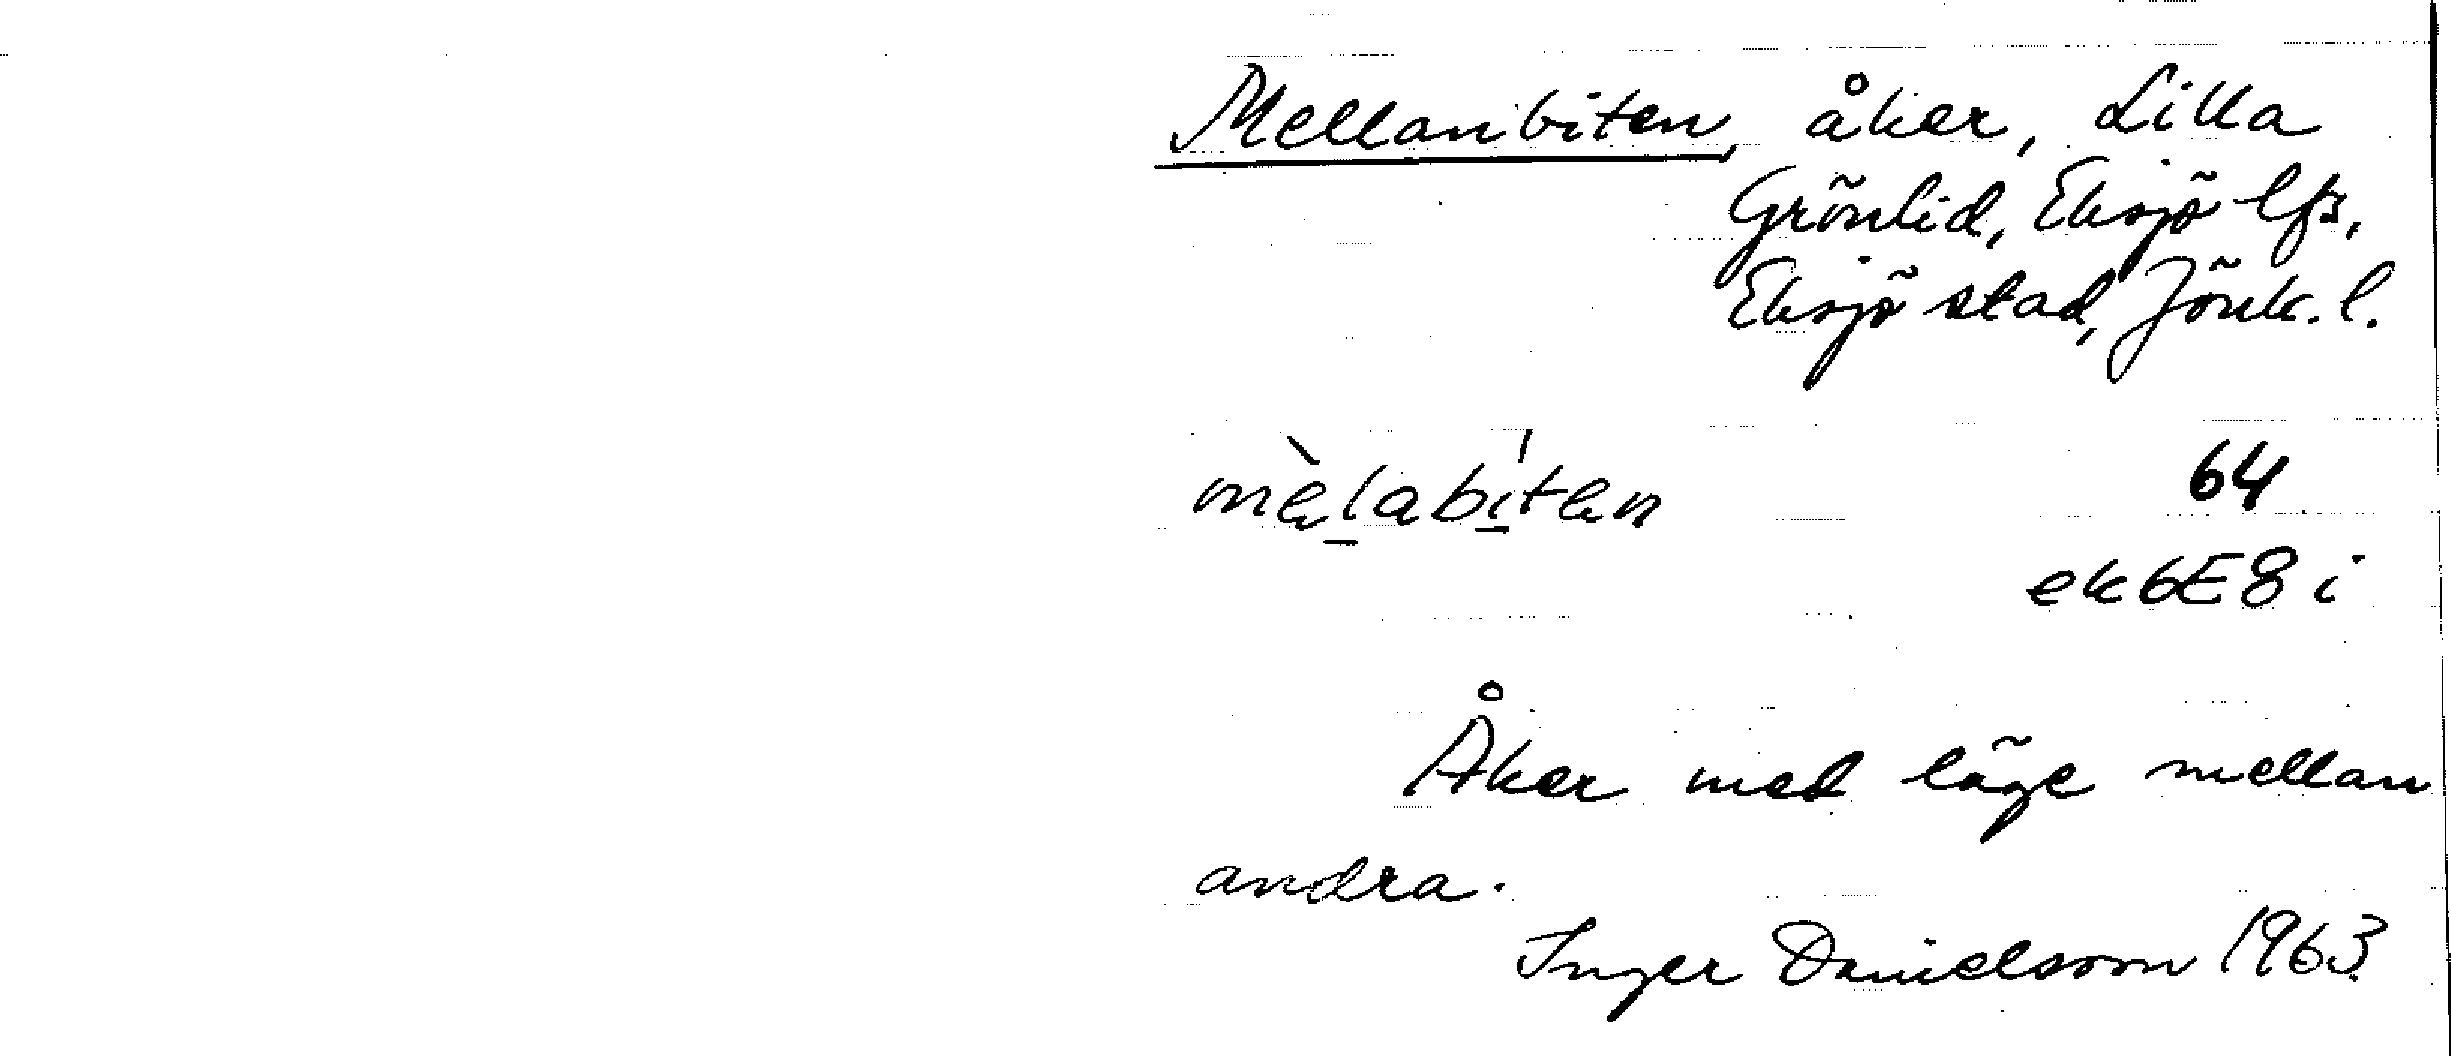 Mellanbiten, åker, Lilla
Grönlid, Eksjö lfs,
Eksjö stad, Jönk. l.
mὲlabi̱ten 64
ek6E8i
Åker med läge mellan
andra.
Inger Danielsson 1963